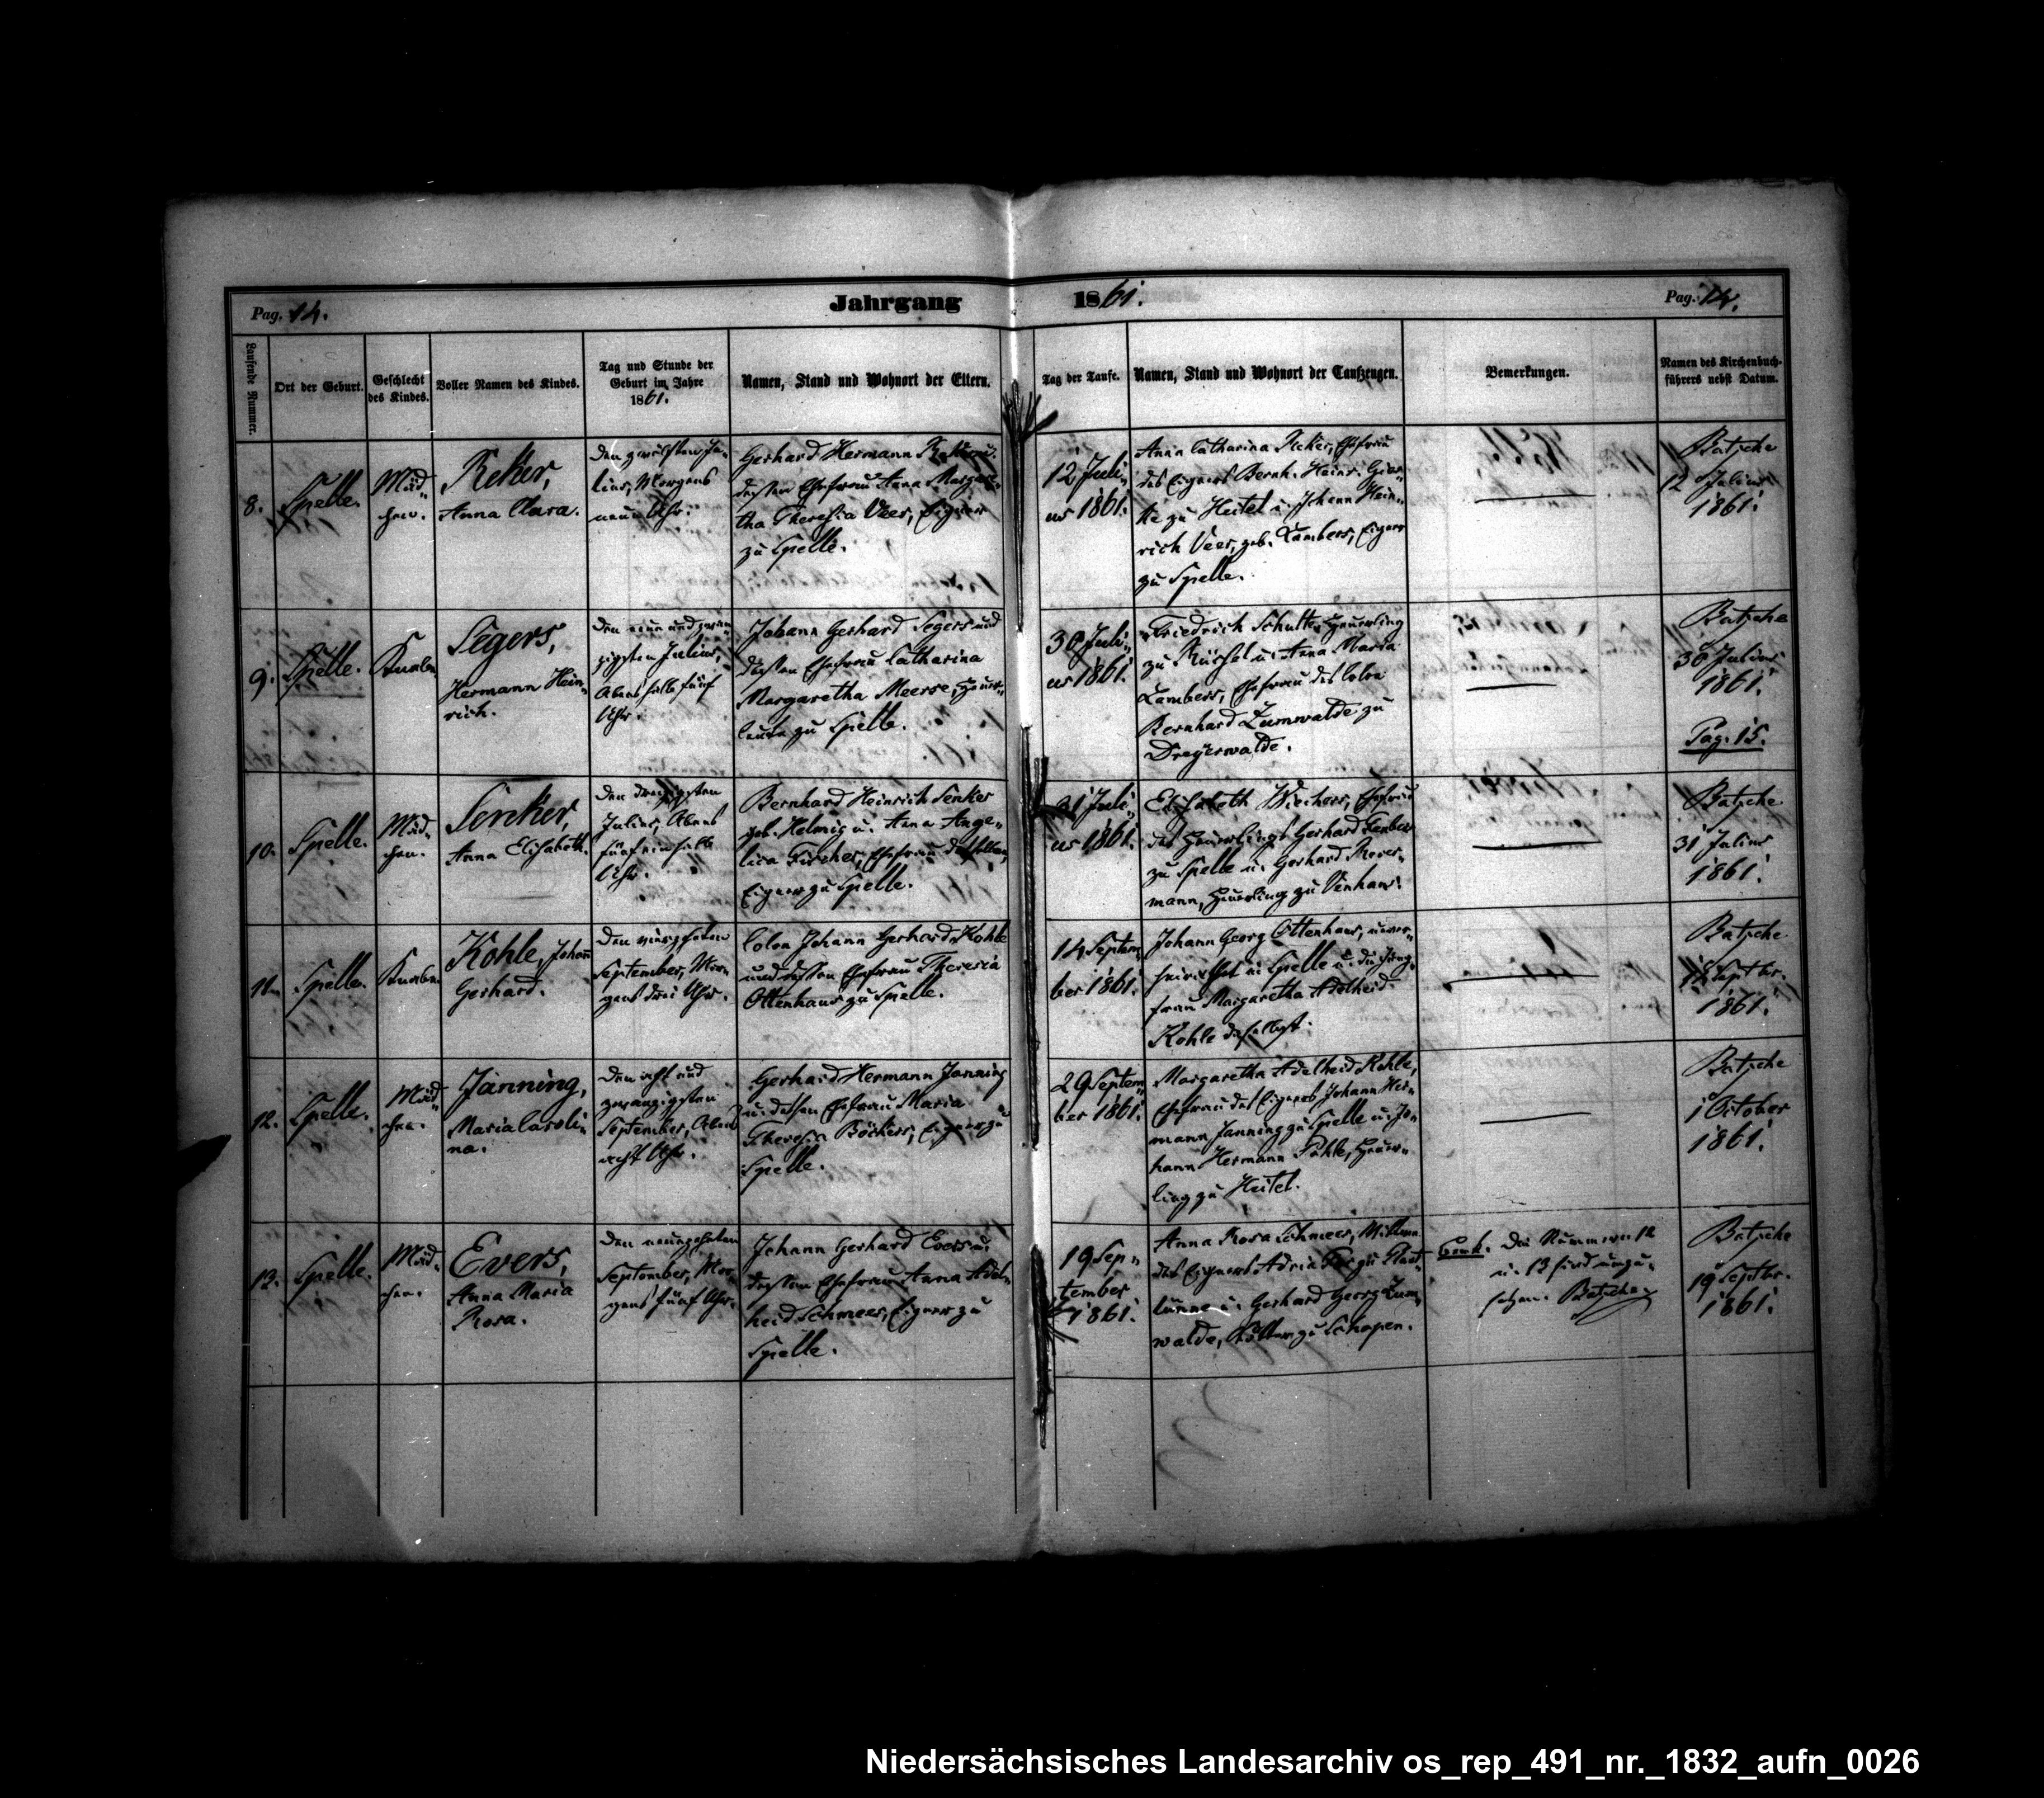 Pag. 14.
Jahrgang 1861.
Pag. 14.
Laufende Nummer.
Ort der Geburt.
Geschlecht
des Kindes.
Voller Namen des Kindes.
Tag und Stunde der
Geburt im Jahre
1861.
Namen, Stand und Wohnort der Eltern.
Tag der Taufe.
Namen, Stand und Wohnort der Taufzeugen.
Bemerkungen.
Namen des Kirchenbuch-
führers nebst Datum.
8.
Spelle.
Mäd-
chen.
Reker,
Anna Clara.
Den zwölften Ju-
lius, Morgens
neun Uhr.
Gerhard Hermann Reker u.
dessen Ehefrau Anna Margare-
tha Theresia Veer, Eigner
zu Spelle.
12 Juli-
us 1861.
Anna Catharina Reker, Ehefrau
des Eigners Bernh. Heinr.
zu Heitel u. Johann Hein-
rich Veer, geb. Lambers, Eigner
zu Spelle.
Batsche
12 Julius
1861.
9.
Spelle.
Knabe.
Segers,
Hermann Hein-
rich.
Den neun und zwan-
zigsten Julius,
Abends halb fünf
Uhr.
Johann Gerhard Segers und
dessen Ehefrau Catharina
Margaretha Meerse, Heuer-
leute zu Spelle.
30 Juli-
us 1861.
Friedrich Schulte, Heuerling
zu u. Anna Maria
Lambers, Ehefrau des Colon
Bernhard Zumwalde zu
Dreyerwalde.
Batsche
30 Julius
1861.
Pag. 15.
10.
Spelle.
Mäd-
chen.
Senker,
Anna Elisabeth.
Den dreißigsten
Julius, Abends
fünfeinhalb
Uhr.
Bernhard Heinrich Senker
geb. Helmig u. Anna Ange-
lica Ehefrau desselben,
Eigner zu Spelle.
31 Juli-
us 1861.
Elisabeth Wiechers, Ehefrau
des Heuerlings Gerhard
zu Spelle u. Gerhard
mann, Heuerling zu Venhaus.
Batsche
31 Julius
1861.
11.
Spelle.
Knabe.
Kohle, Johann
Gerhard.
Den vierzehnten
September, Mor-
gens drei Uhr.
Colon Johann Gerhard Kohle
und dessen Ehefrau Theresia
Ottenhaus zu Spelle.
14 Septem-
ber 1861.
Johann Georg Ottenhaus, unver-
heirathet in Spelle u. die Jung-
frau Margaretha Adelheid
Kohle daselbst.
Batsche
Septbr.
1861.
12.
Spelle.
Mäd-
chen.
Janning,
Maria Caroli-
na.
Den acht und
zwanzigsten
September, Abends
acht Uhr.
Gerhard Hermann Janning
u. dessen Ehefrau Maria
Theresia Böckers, Eigner zu
Spelle.
29 Septem-
ber 1861.
Margaretha Adelheid Kohle,
Ehefrau des Eigners Johann Her-
mann Janning zu Spelle u. Jo-
hann Hermann Heuer-
ling zu Heitel.
Batsche
1 October
1861.
13.
Spelle.
Mäd-
chen.
Evers,
Anna Maria
Rosa.
Den neunzehnten
September, Mor-
gens fünf Uhr.
Johann Gerhard Evers u.
dessen Ehefrau Anna Adel-
heid Schmeer, Eigner zu
Spelle.
19 Sep-
tember
1861.
Anna Rosa Schmeer, Wittwe
des Eigners zu Plant-
lünne u. Gerhard Georg Zum-
walde, zu Schapen.
Die Nummern 12
u. 13 sind umzu-
setzen. Batsche
Batsche
19 Septbr.
1861.
Niedersächsisches Landesarchiv os_rep_491_nr._1832_aufn_0026